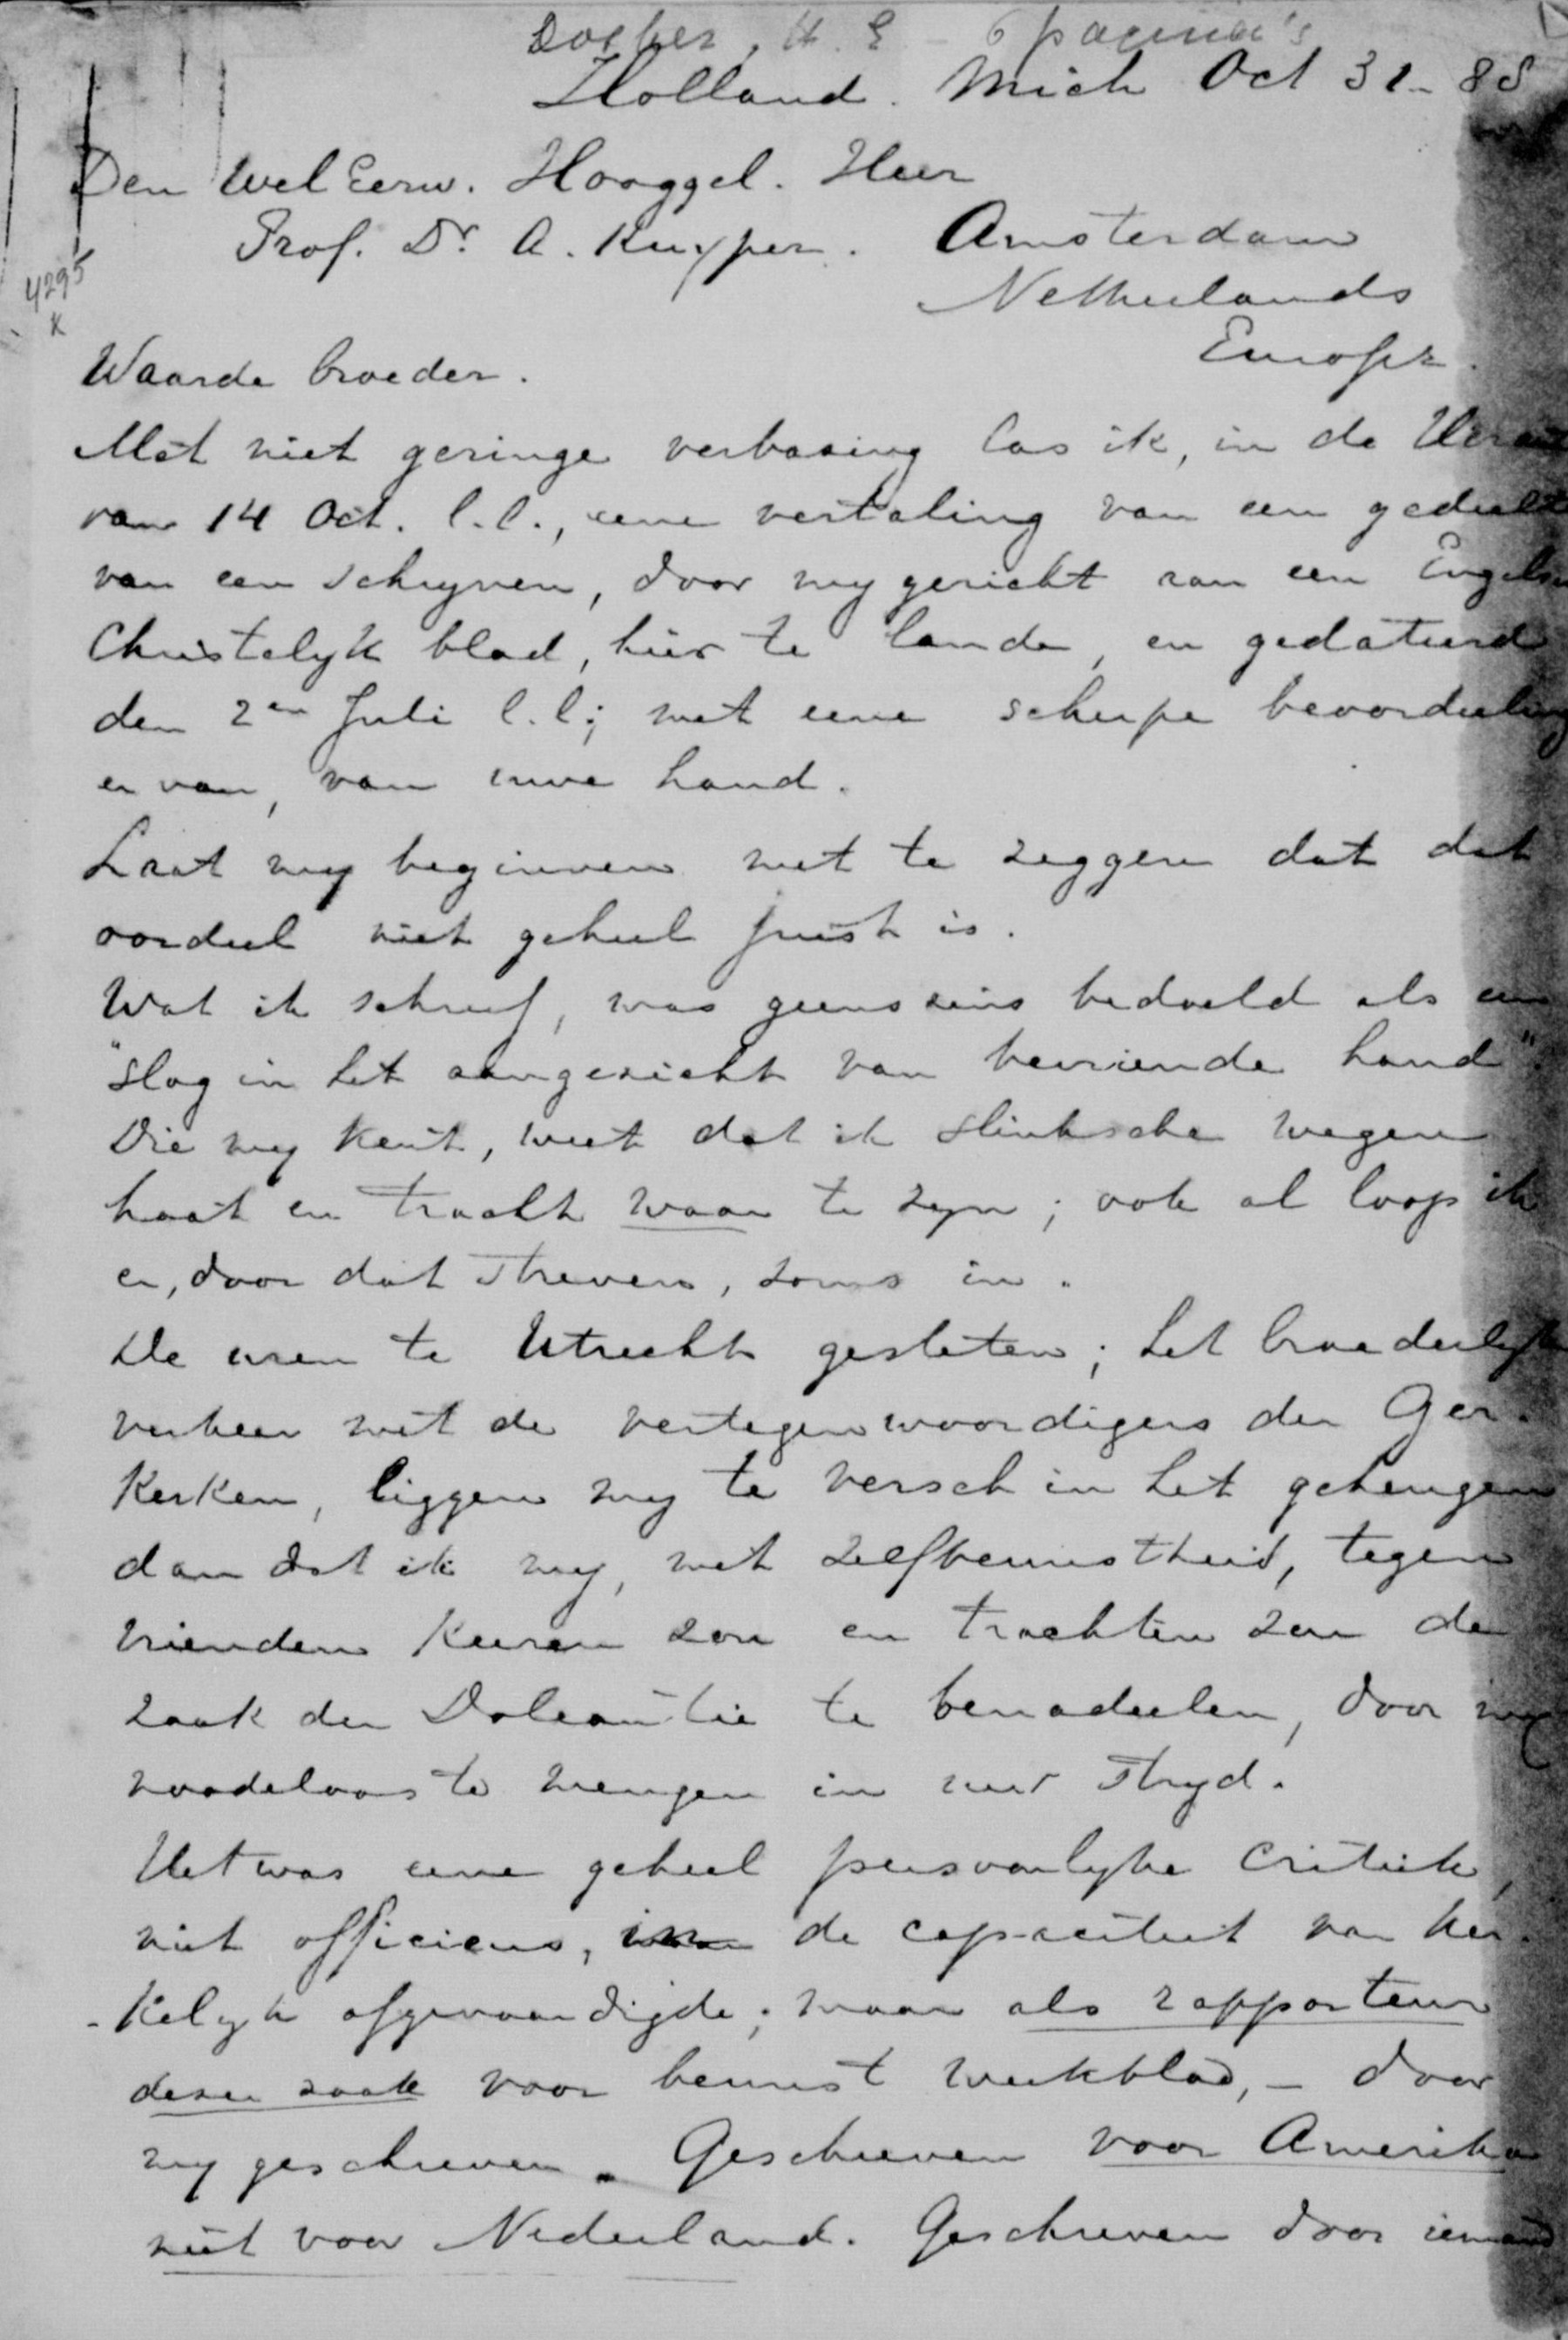 Dosker, H. E - 6 pagina's
Holland. Mich Oct 31 - 88
Den WelEerw. Hooggel. Heer
Prof. Dr. A. Kuyper. Amsterdam
Netherlands
4295
x
Europe.
Waarde broeder.
Met niet geringe verbazing las ik, in de Heraut
van 14 Oct. l.l., eene vertaling van een gedeelte
van een schryven, door my gericht aan een Engelsch
Christelyk blad, hier te lande, en gedateerd
den 2en Juli l.l; met eene scherpe beoordeeling
er van, van uwe hand.
Laat my beginnen met te zeggen dat dat
oordeel niet geheel juist is.
Wat ik schreef, was geenszins bedoeld als een
"slag in het aangezicht van bevriende hand".
Die my kent, weet dat ik slinksche wegen
haat en tracht waar te zyn; ook al loop ik
er, door dat streven, soms in.
De uren te Utrecht gesleten; het broederlyk
verkeer met de vertegenwoordigers der Ger.
Kerken, liggen my te versch in het geheugen
dan dat ik my, met zelfbewustheid, tegen
vrienden keeren zou en trachten zou de
zaak der Doleantie te benadeelen, door my
noodeloos te mengen in uw stryd.
Het was eene geheel persoonlyke critiek,
niet officieus, in de capaciteit van ker-
-kelyk afgevaardigde; maar als rapporteur
dezer zaak voor bewust weekblad, - door
my geschreven. Geschreven voor Amerika
niet voor Nederland. Geschreven door iemand